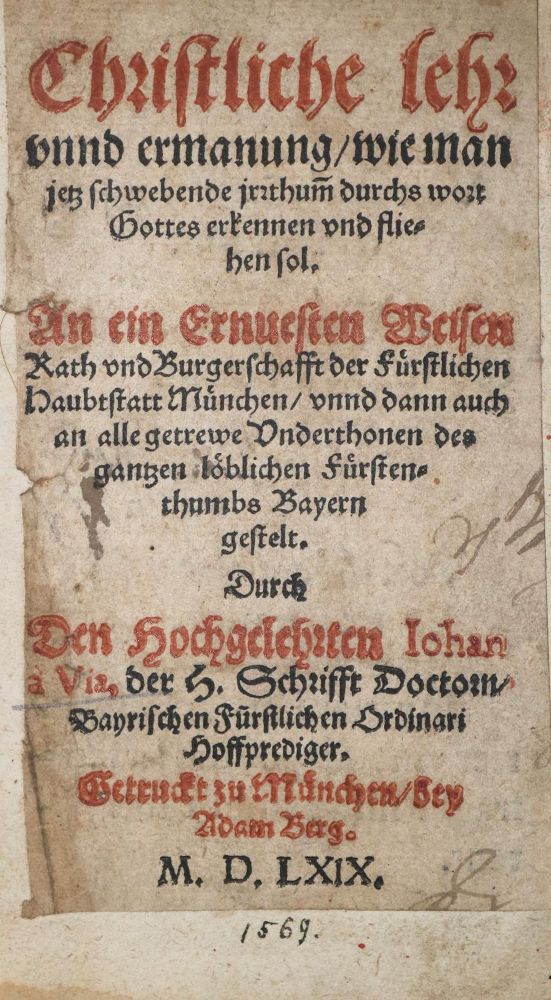 Christliche lehr
vnnd ermanung/wie man
jetz schwebende jrrthum̃ durchs wort
Gottes erkennen vnd flie⸗
hen sol.
An ein Ernuesten Weisen
Rath vnd Burgerschafft der Fürstlichen
Haubtstatt München/ vnnd dann auch
an alle getrewe Vnderthonen des
gantzen löblichen Fürsten⸗
thumbs Bayern
gestelt.
Durch
Den Hochgelehrten Iohan
à Via, der H. Schrifft Doctorn/
Bayrischen Fürstlichen Ordinari
Hoffprediger.
Getruckt zu München/bey
Adam Berg.
M. D. LXIX.
1569.